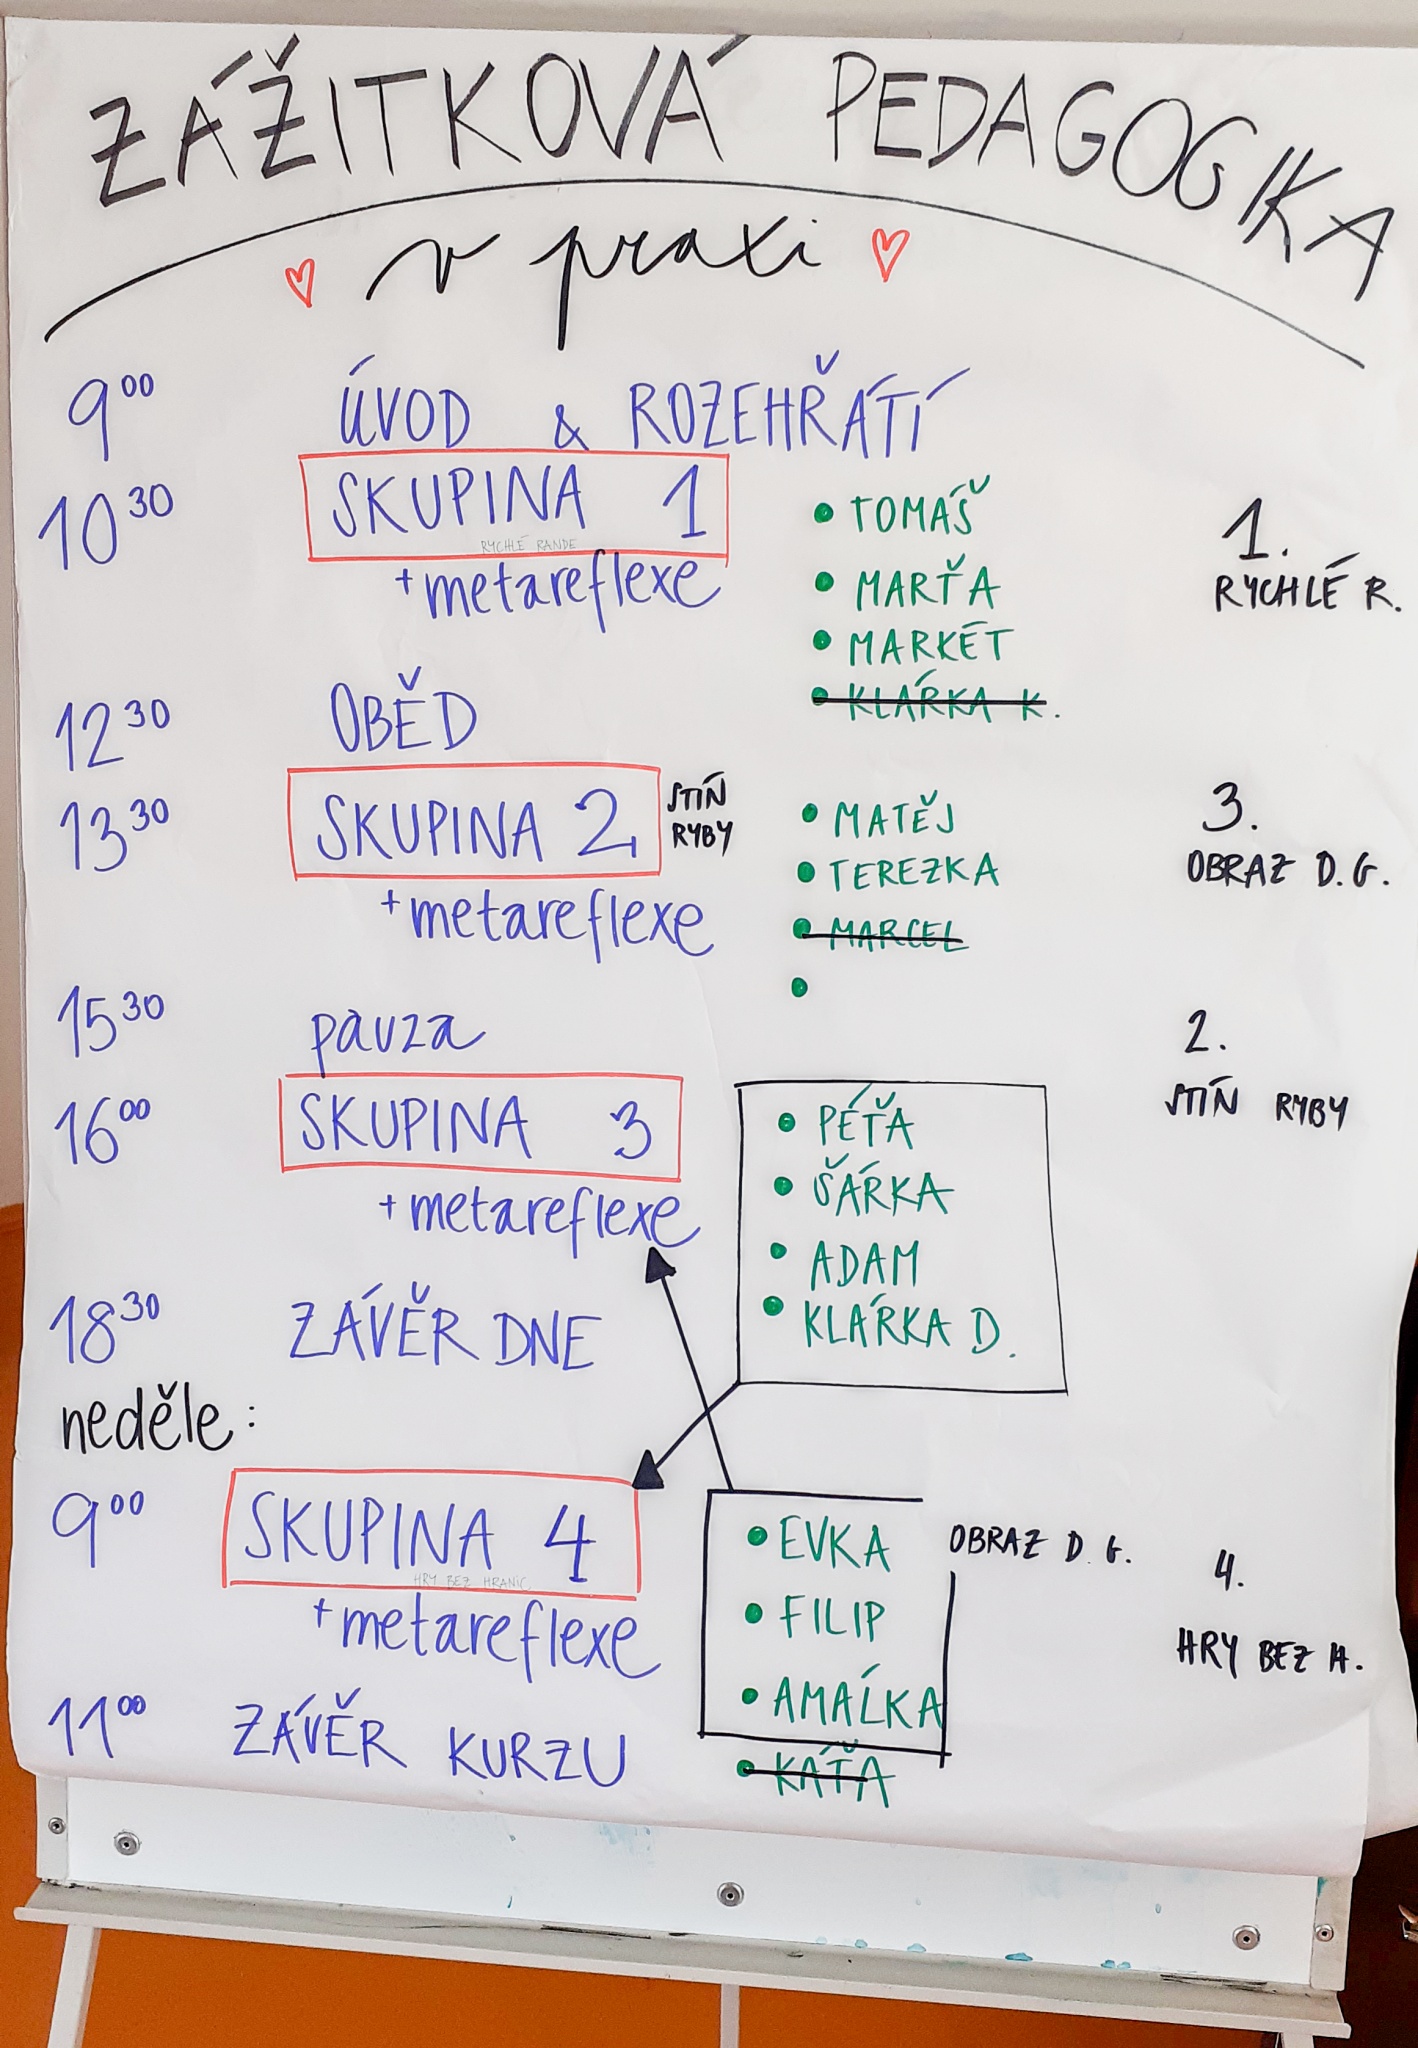 ZÁŽITKOVÁ PEDAGOGIKA
v praxi
9⁰⁰ ÚVOD & ROZEHŘÁTÍ
10³⁰ SKUPINA 1
RYCHLÉ RANDE
+metareflexe
• TOMÁŠ
• MARŤA
• MARKÉT
• KLÁRKA K.
1.
RYCHLÉ R.
12³⁰ OBĚD
13³⁰ SKUPINA 2
STÍN
RYBY
+metareflexe
• MATĚJ
• TEREZKA
• MARCEL
•
3.
OBRAZ D.G.
15³⁰ pauza
16⁰⁰ SKUPINA 3
+metareflexe
• PÉŤA
• ŠÁRKA
• ADAM
• KLÁRKA D.
2.
STÍN RYBY
18³⁰ ZÁVĚR DNE
neděle:
9⁰⁰ SKUPINA 4
HRY BEZ HRANIC
+metareflexe
• EVKA
• FILIP
• AMÁLKA
• KÁŤA
OBRAZ D. G.
4.
HRY BEZ H.
11⁰⁰ ZÁVĚR KURZU